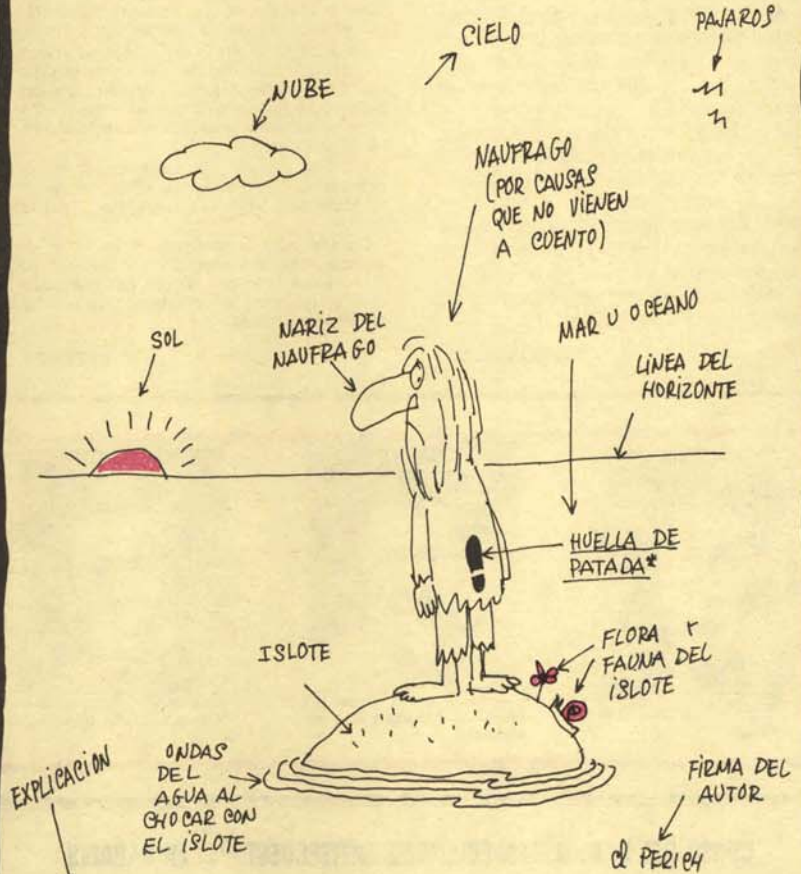 CIELO
PAJAROS
NUBE
NAUFRAGO
(POR CAUSAS
QUE NO VIENEN
A CUENTO)
SOL
NARIZ DEL
NAUFRAGO
MAR U OCEANO
LINEA DEL
HORIZONTE
HUELLA DE
PATADA*
ISLOTE
FLORA Y
FAUNA DEL
ISLOTE
EXPLICACION
ONDAS
DEL
AGUA AL
CHOCAR CON
EL ISLOTE
FIRMA DEL
AUTOR
el PERICH